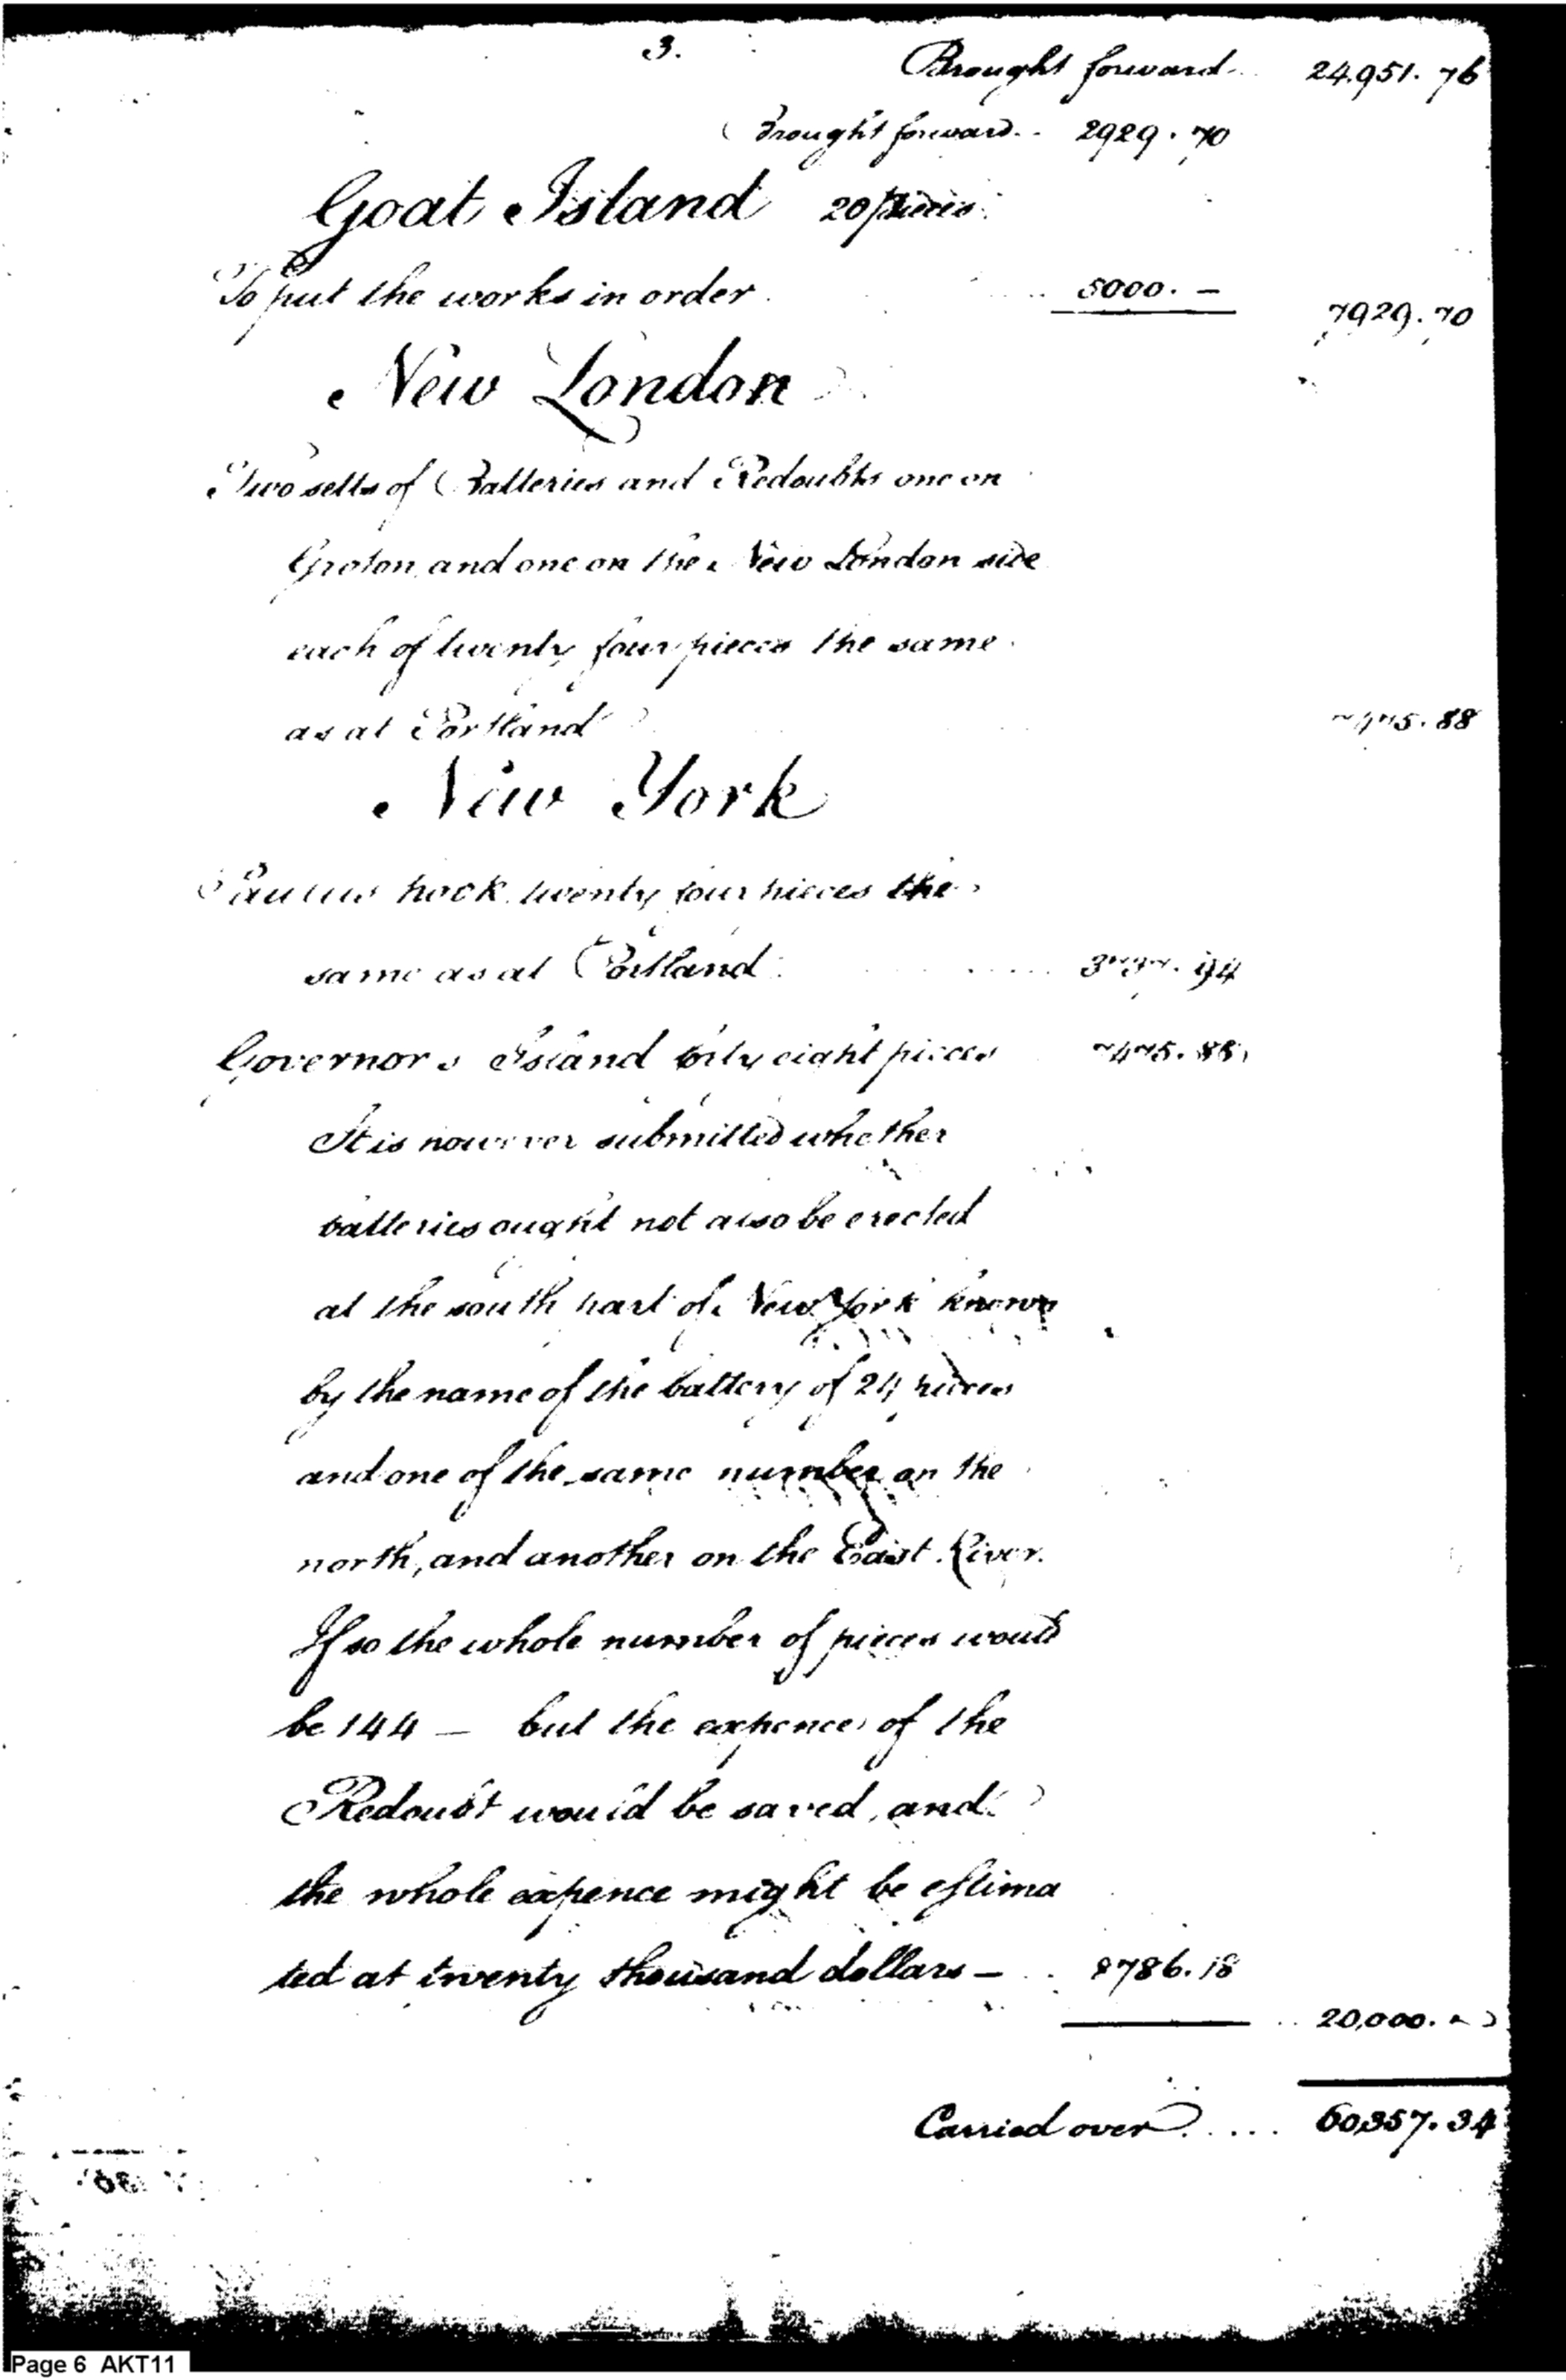 3.
Brought forward 24,951.76
Brought forward 2929.70
Goat Island 20 pieces
To put the works in order 5000.—
7929.70
New London
Two setts of Batteries and Redoubts one on
Groton and one on the New London side
each of twenty four pieces the same
as at Portland 7475.88
New York
Paulus hook twenty four pieces the
same as at Portland 3737.94
Governors Island forty eight pieces 7475.88
It is however submitted whether
batteries ought not also be erected
at the south part of New York known
by the name of the battery of 24 pieces
and one of the same number on the
north, and another on the East River.
If so the whole number of pieces would
be 144 — but the expence of the
Redoubt would be saved, and
the whole expence might be estima
ted at twenty thousand dollars — 8786.18
20,000.
Carried over 60,357.34
Page 6 AKT11